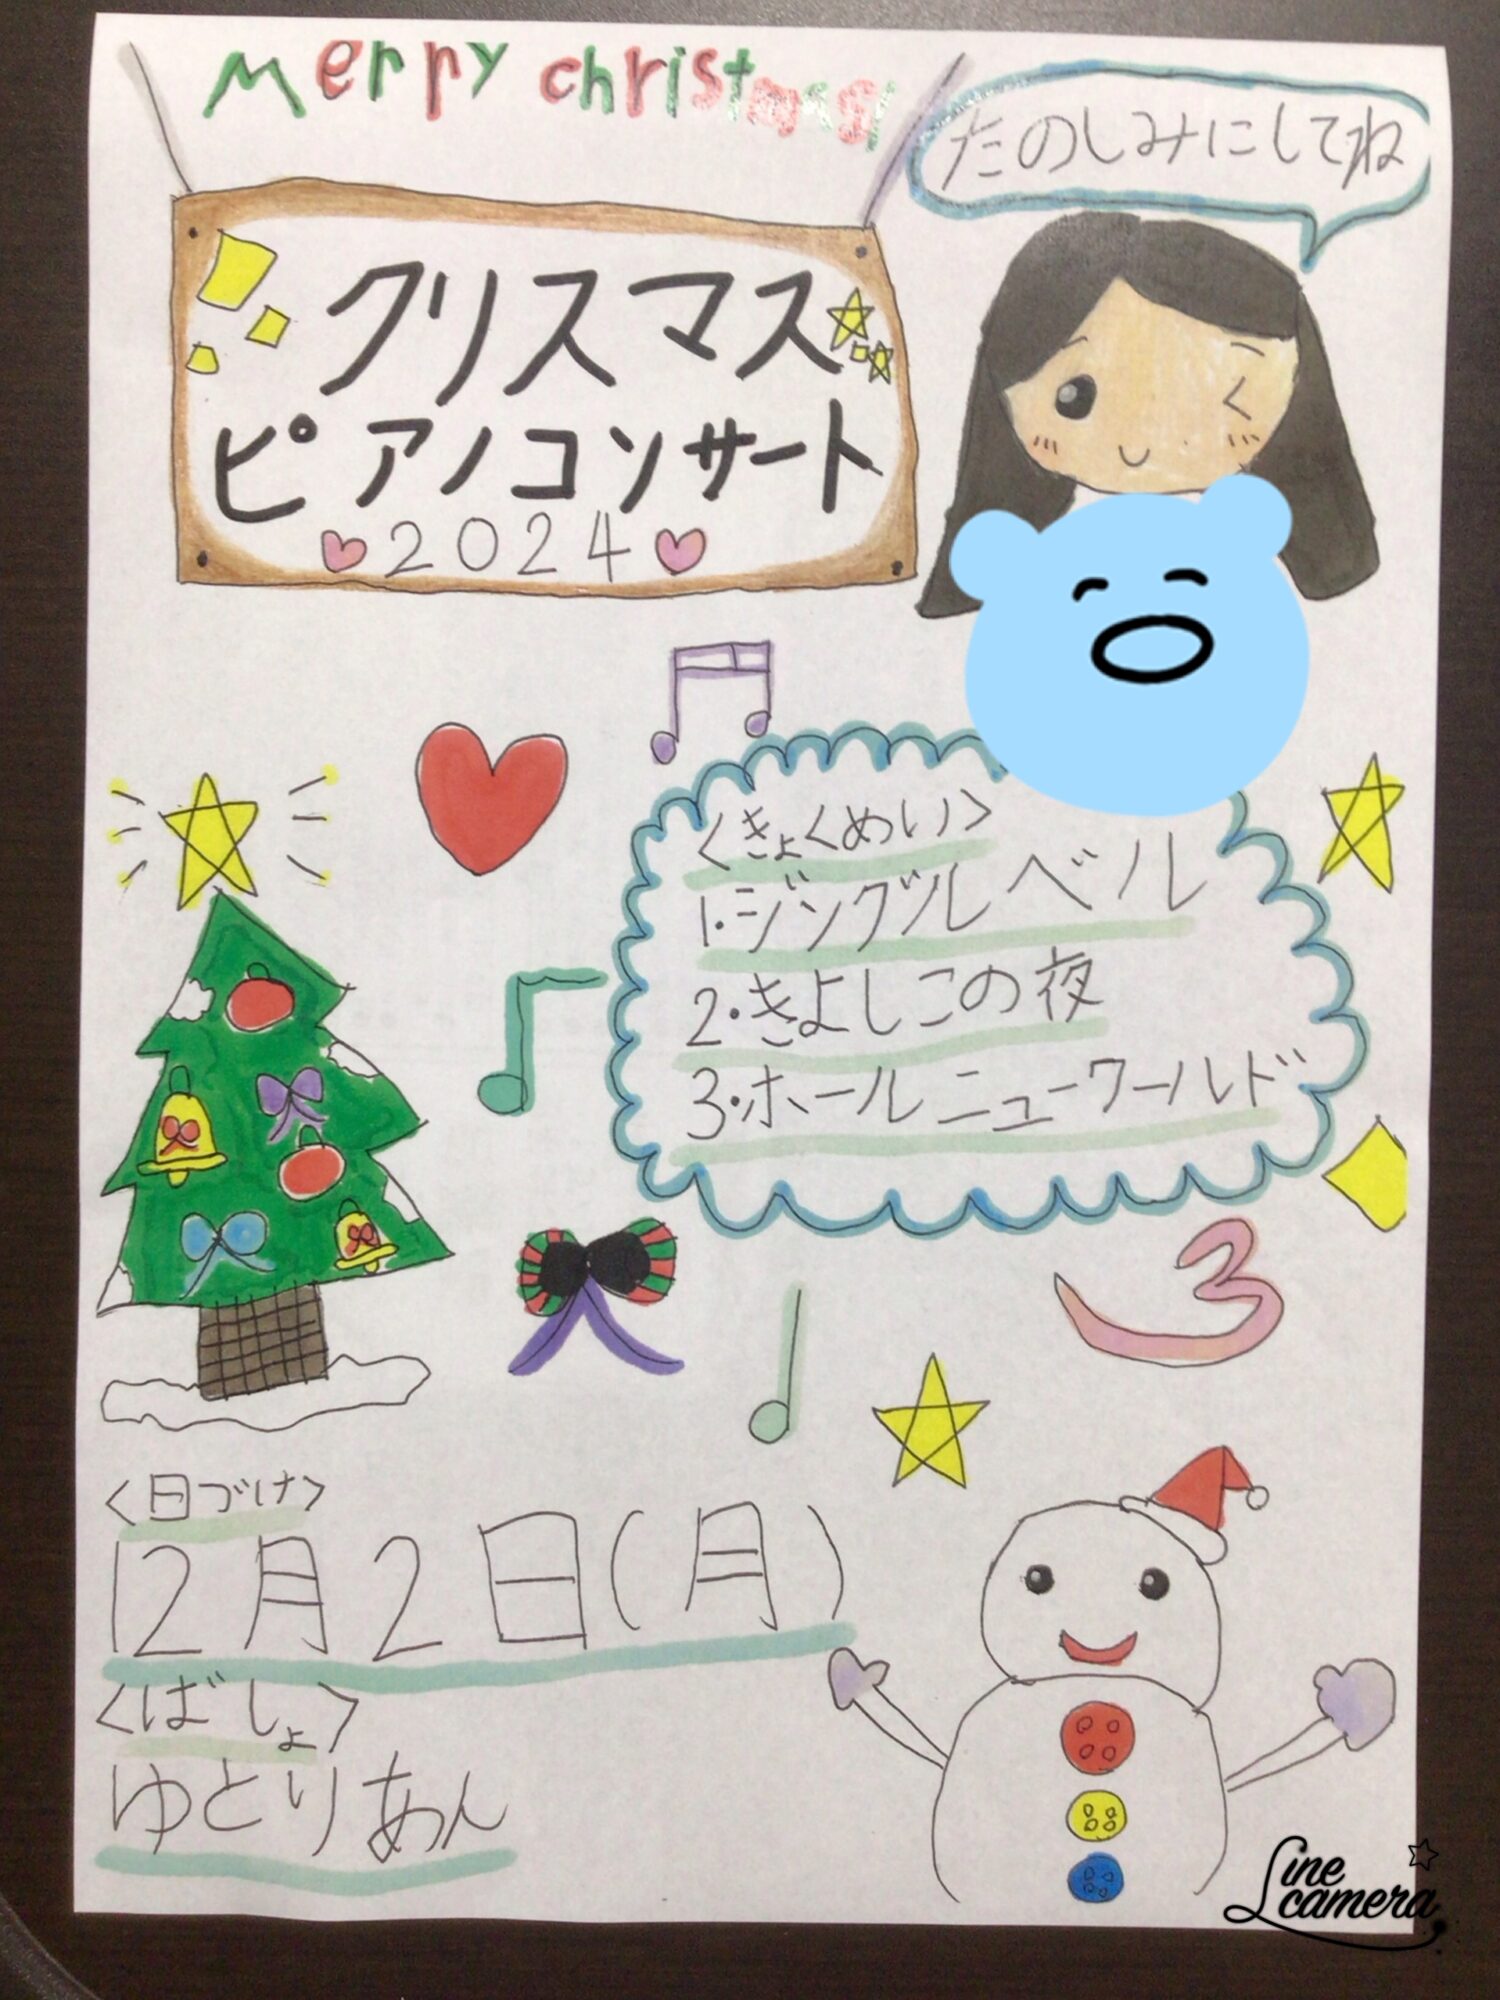 Merry christmas!
たのしみにしてね
クリスマス
ピアノコンサート
2024
<きょくめい>
1.ジングルベル
2.きよしこの夜
3.ホールニューワールド
<日づけ>
12月2日(月)
<ばしょ>
ゆとりあん
Line camera